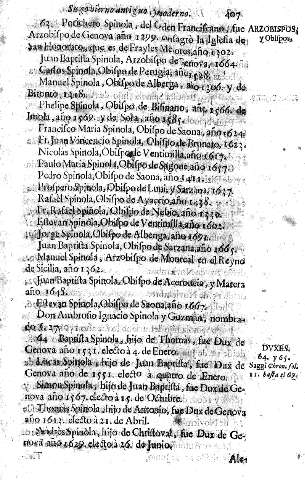 Su govierno antiguo, y moderno. 807
63. Porchero Spinola, del Orden Franciscano, fue
Arzobispo de Genova año 1299. consagrò la Iglesia de
San Honorato, que es de Frayles Menores, año 1302.
Juan Baptista Spinola, Arzobispo de Genova, 1664.
Carlos Spinola, Obispo de Perugia, año 1528.
Manuel Spinola, Obispo de Alberga, año 1306. y de
1248.
Phelipe Spinola, Obispo de Bisinano, año, 1566. de
Imola, año 1569. y de Sola, año 1585.
Francisco Maria Spinola, Obispo de Saona, año 1624.
Fr. Juan Vincencio Spinola, Obispo de Brunato, 1623.
Nicolas Spinola, Obispo de Ventimilla, año 1617.
Paulo Maria Spinola, Obispo de año 1637
Pedro Spinola, Obispo de Saona, año 1411.
Prospero Spinola, Obispo de Luni, y Sarzana, 1637.
Rafael Spinola, Obispo de Ayaccio, año 1438.
Fr. Rafael Spinola, Obispo de Nebio, año 1320.
Estevan Spinola, Obispo de Ventimilla, año 1602.
Jorge Spinola, Obispo de Albenga, año 1691.
Juan Baptista Spinola, Obispo de Sarzana, año 1665.
Manuel Spinola, Arzobispo de Monreal en el Reyno
de Sicilia, año 1362.
Juan Baptista Spinola, Obispo de Acerencia, y Matera
año 1648.
Estevan Spinola, Obispo de Saona, año 1667.
Don Ambrosio Ignacio Spinola y Guzman, nombra-
do §. 27.
64 Baptista Spinola, hijo de Thomas, fue Dux de
Genova año 1531. electo à 4. de Enero.
Lucas Spinola, hijo de Juan Baptista, fue Dux de
Genova año de 1551. electo à quatro de Enero.
Simon Spinola, hijo de Juan Baptista, fue Dux de Ge-
nova año 1567. electo à 15. de Octubre.
Thomas Spinola, hijo de Antonio, fue Dux de Genova
año 1613. electo à 21. de Abril.
Andrès Spinola, hijo de Christoval, fue Dux de Ge-
nova año 1629. electo à 26. de Junio.
Ale-
ARZOBISPOS,
y Obispos.
DVXES.
64. y 65.